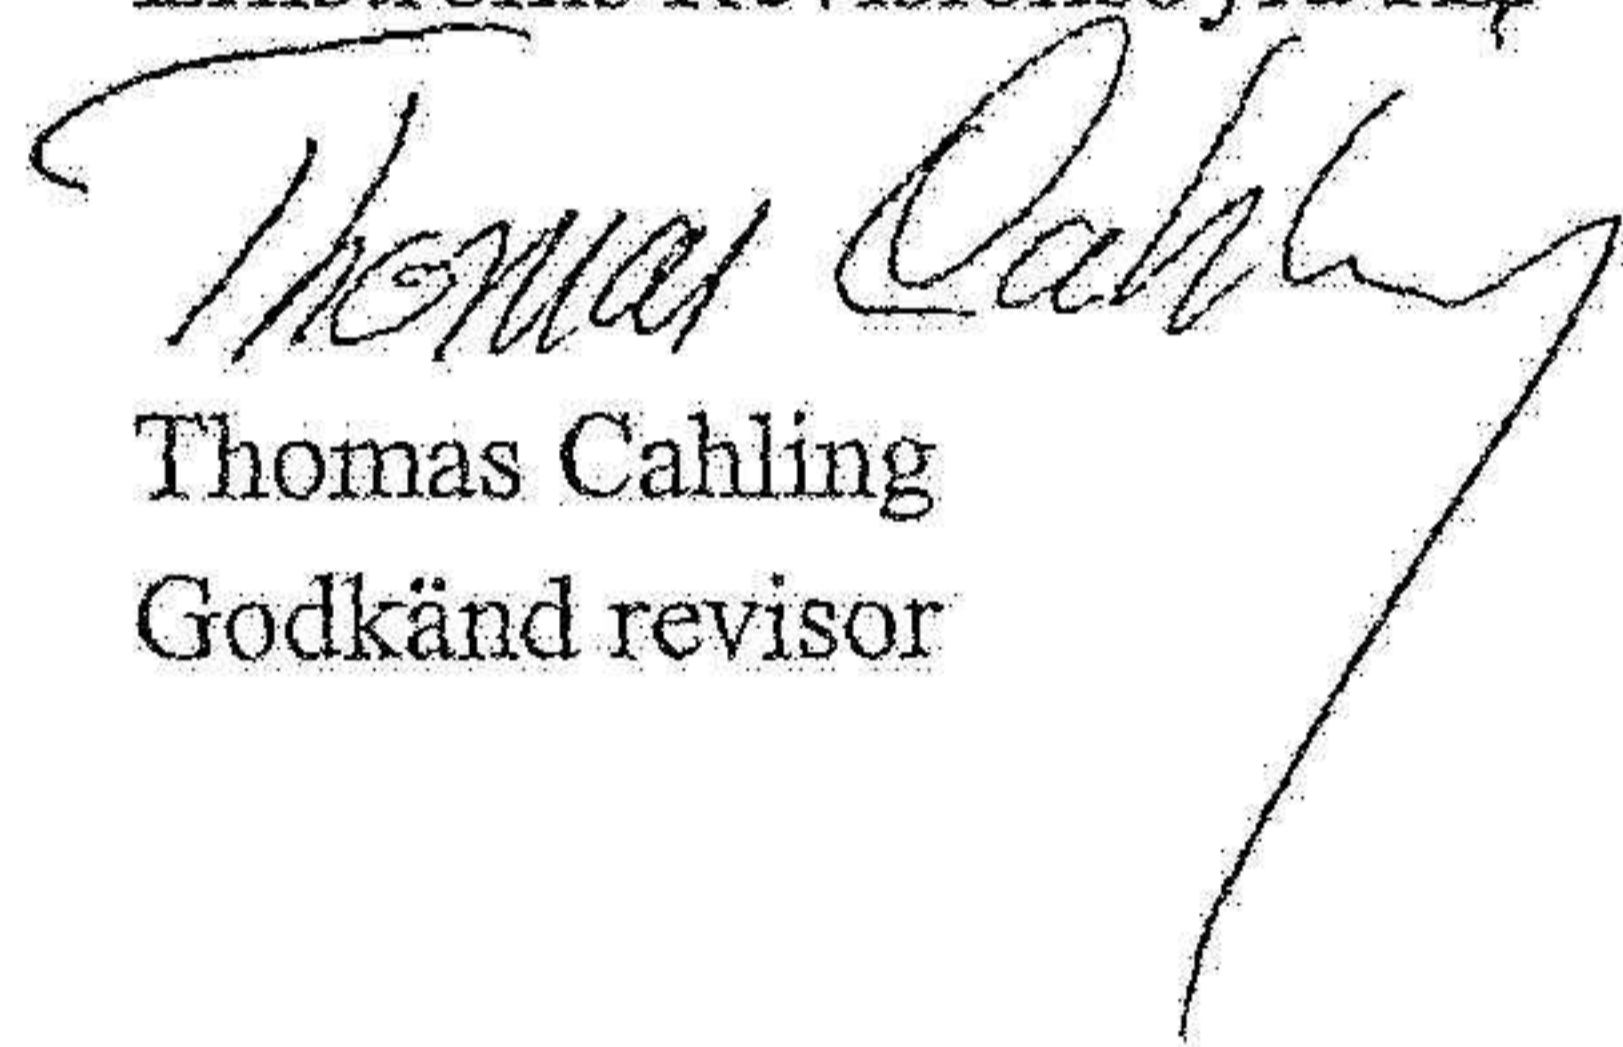 Thomas Cahling
Thomas Cahling
Godkänd revisor